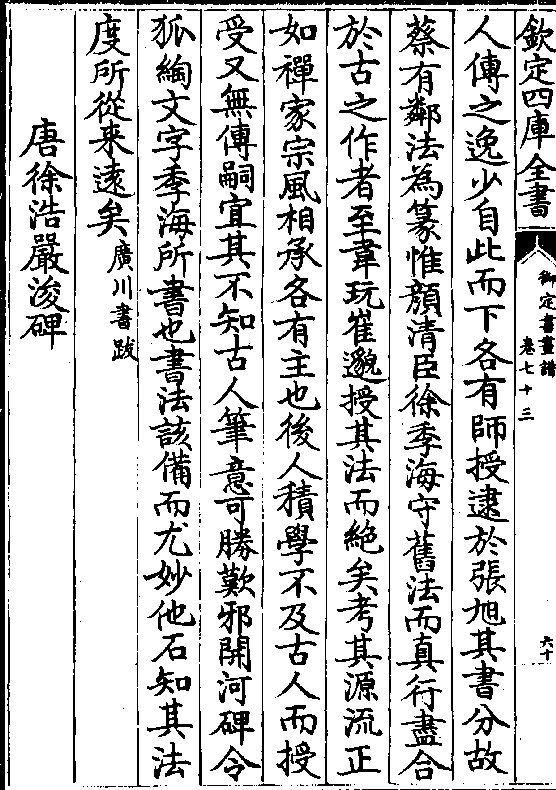 欽定四庫全書
御定書畫譜
卷七十三
六十
人傳之逸少自此而下各有師授逮於張旭其書分故
蔡有鄰法為篆惟顔清臣徐季海守舊法而真行盡合
於古之作者至韋玩崔邈授其法而絶矣考其源流正
如禪家宗風相承各有主也後人積學不及古人而授
受又無傳嗣宜其不知古人筆意可勝歎邪開河碑令
狐綯文字季海所書也書法該備而尤妙他石知其法
度所從来逺矣廣川書跋
唐徐浩嚴浚碑